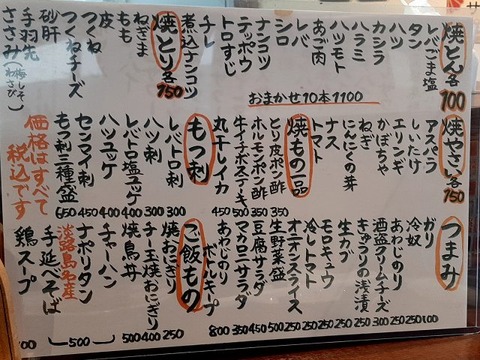 焼とん各100
レバごま塩
タン
ハツ
カシラ
ハラミ
ハツモト
あご肉
レバ
シロ
ナンコツ
テッポウ
トロすじ
チレ
煮込ナンコツ
焼とり各150
ねぎま
もも
皮
つくね
つくねチーズ
砂肝
手羽先
ささみ(梅しそ わさび)
おまかせ10本1100
焼やさい各150
アスパラ
しいたけ
エリンギ
かぼちゃ
ねぎ
にんにくの芽
ナス
トマト
焼もの一品
とり皮ポン酢 350
ホルモンポン酢 350
牛イチボステーキ 500
丸干しイカ 450
もつ刺
レバトロ刺 300
ハツ刺 300
レバトロ塩ユッケ 400
ハツユッケ 400
センマイ刺 450
もつ刺三種盛 650
価格はすべて税込です
つまみ
ガリ 100
冷奴 200
あわじのり 250
酒盗クリームチーズ 250
きゅうりの浅漬 250
生カブ 250
モロキュウ 250
冷しトマト 250
オニオンスライス 250
生野菜盛 500
豆腐サラダ 450
マカロニサラダ 350
あわじのり
ポルキープ 800
ご飯もの
焼おにぎり 250
チーズ焼おにぎり 400
焼鳥丼 500
チャーハン
ナポリタン
淡路島名産
手延べそば
500
鶏スープ